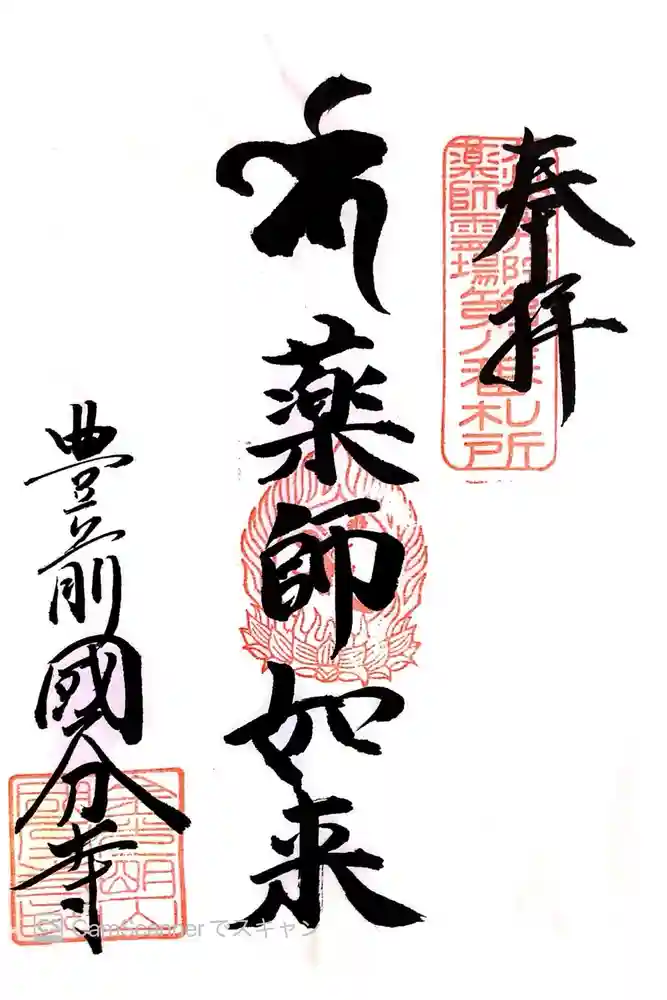 奉拝
薬師霊場第八番札所
薬師如来
豊前國分寺
CamScanner でスキャン